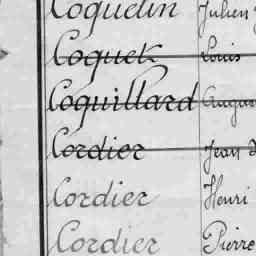 Coquelin Julien
Coquek Louis
Coquillard Augus
Cordier Jean
Cordier Henri
Cordier Pierre